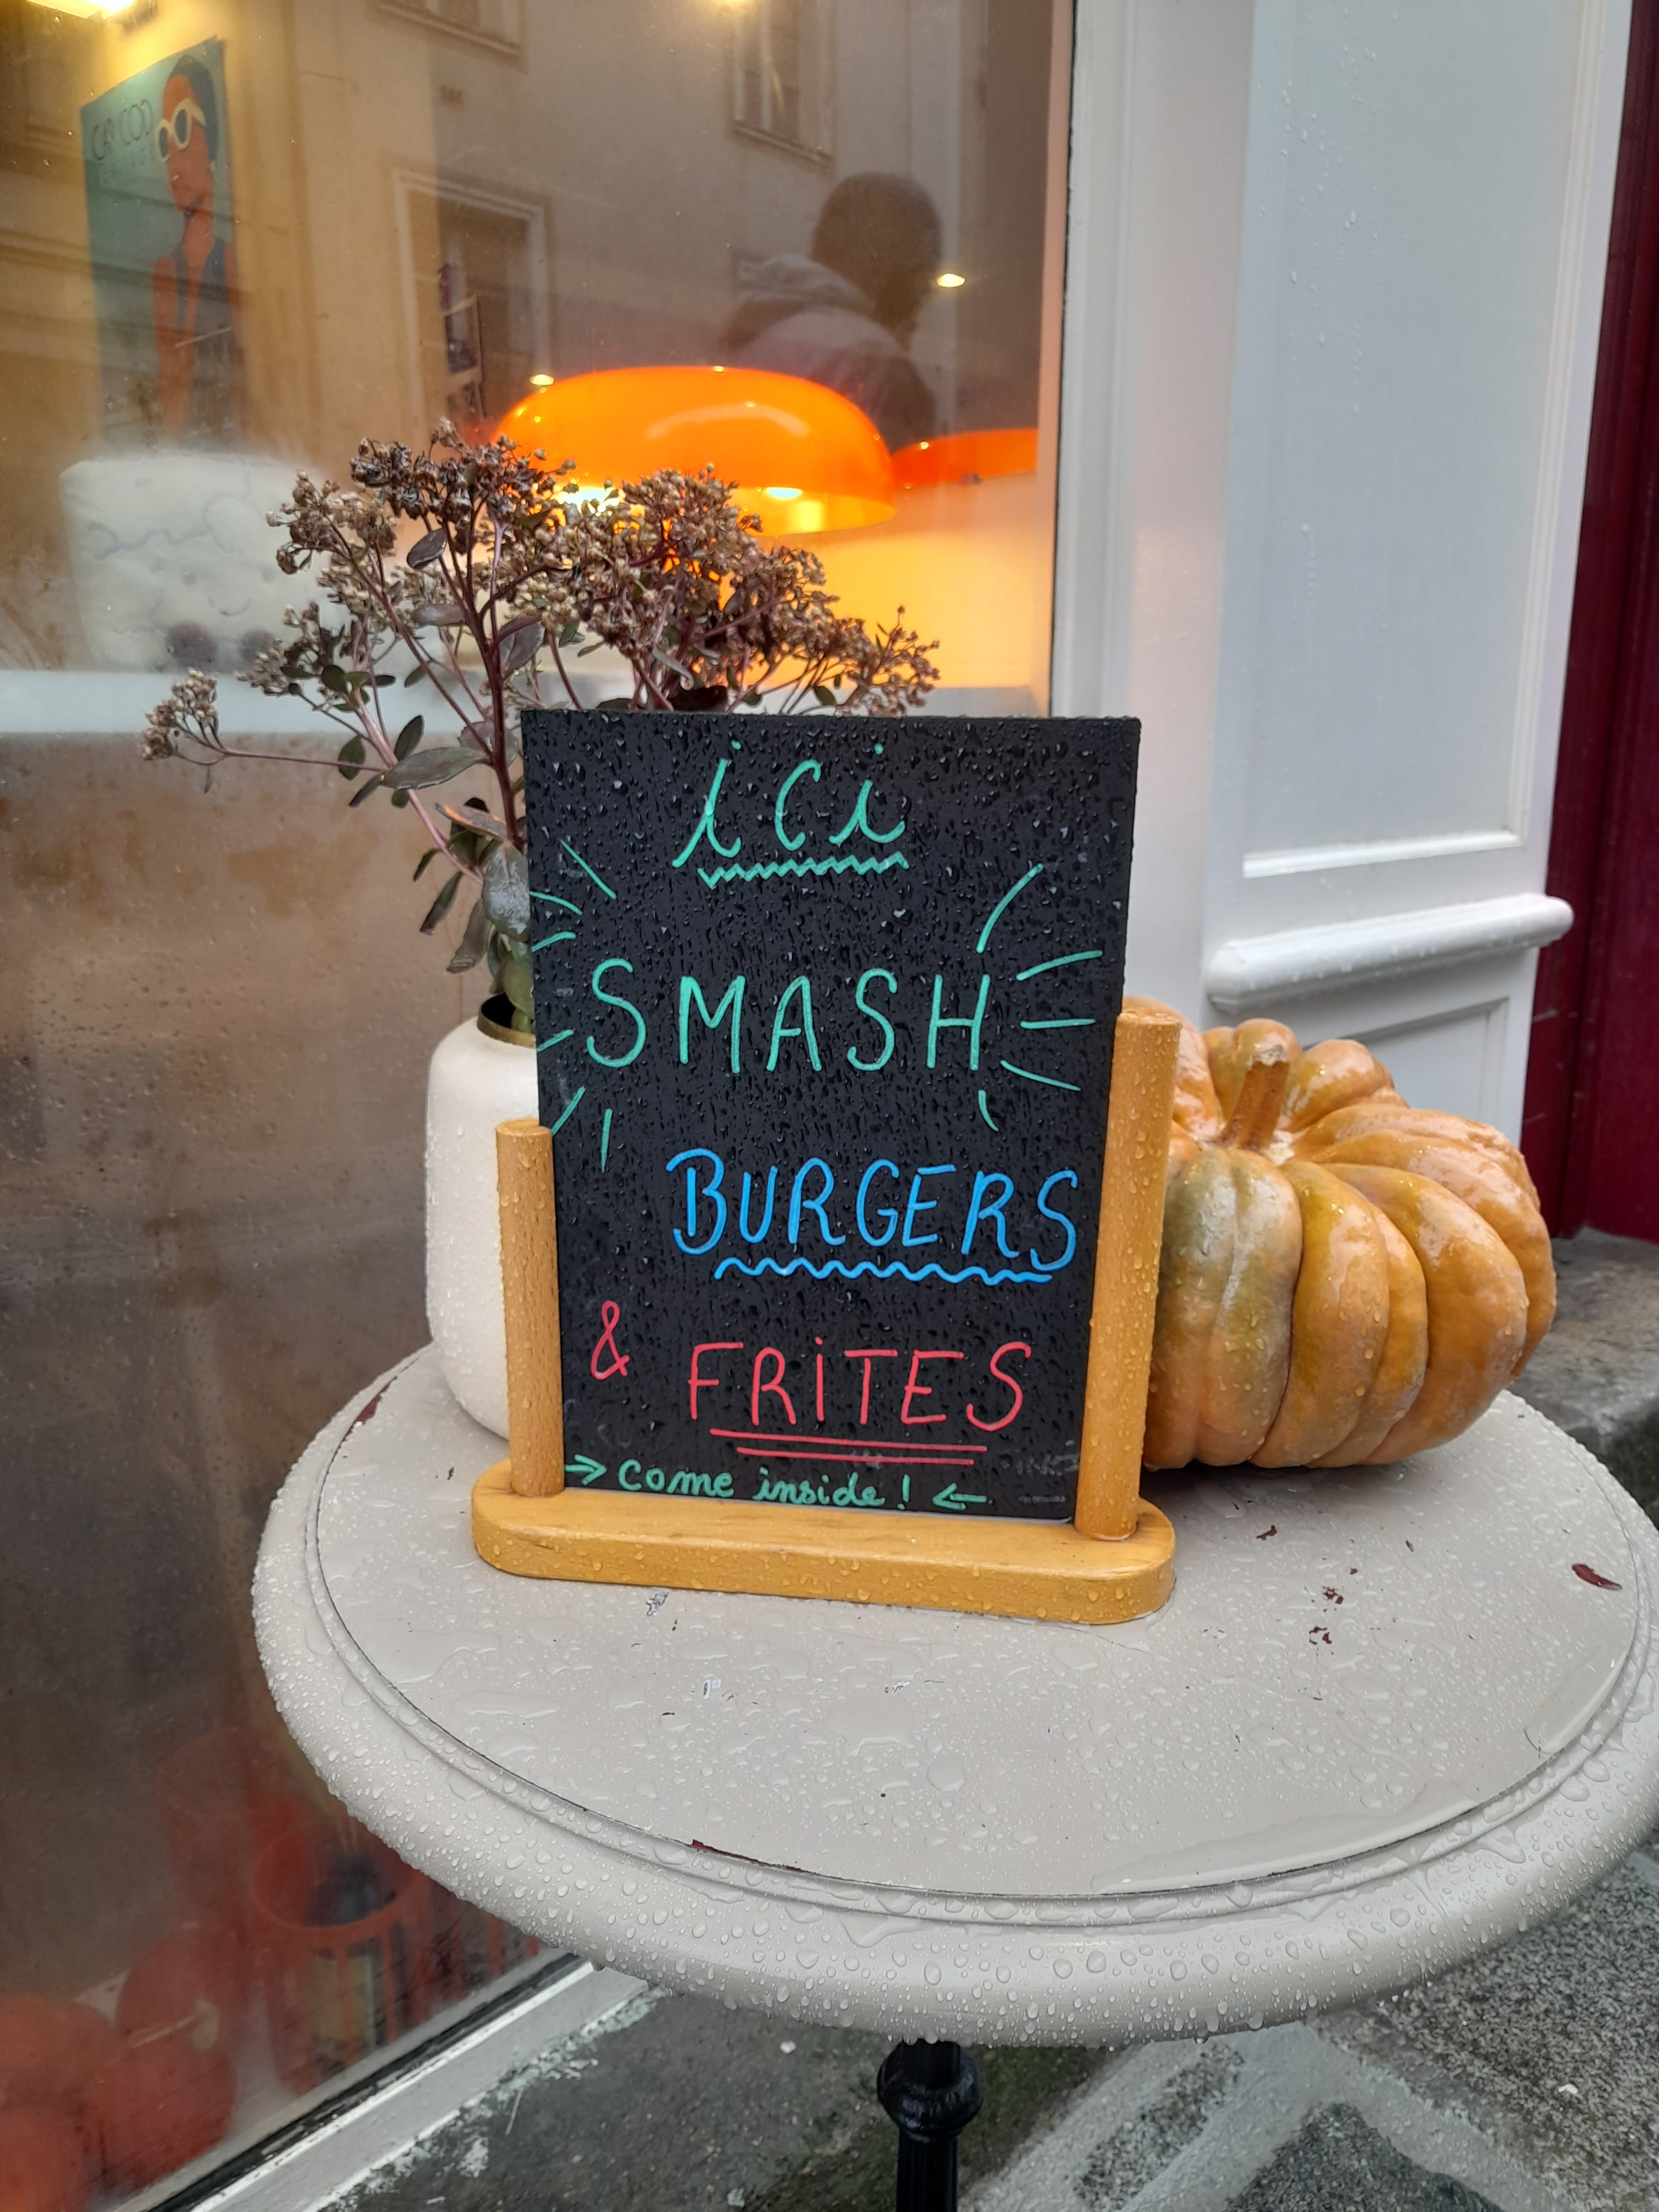 ici
SMASH
BURGERS
& FRiTES
→ Come inside! ←